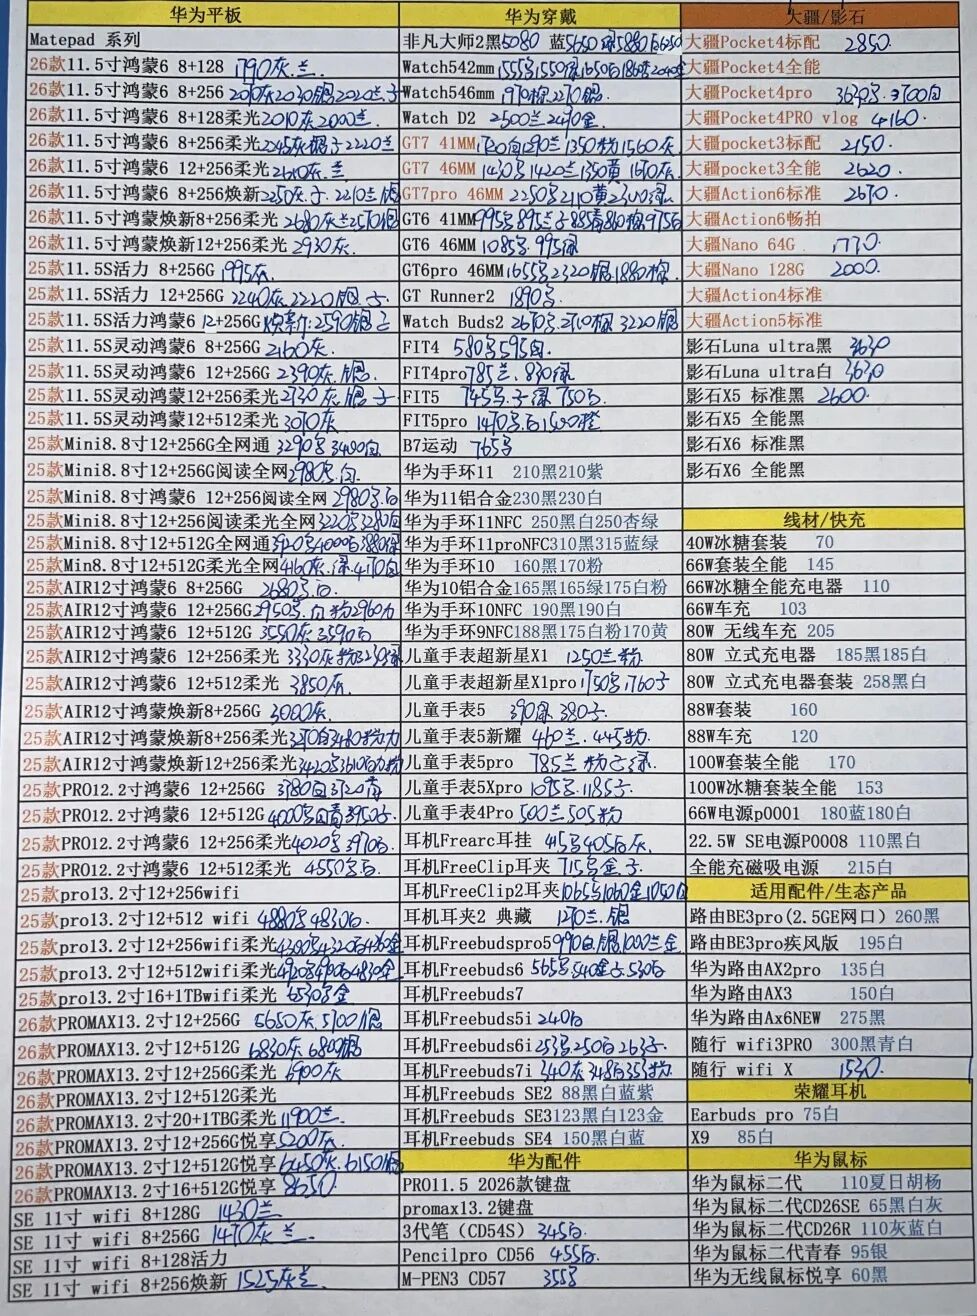 华为平板
Matepad 系列
26款11.5寸鸿蒙6 8+128 1790灰.兰.
26款11.5寸鸿蒙6 8+256 2010灰2030银2020兰.子
26款11.5寸鸿蒙6 8+128柔光2010灰2000兰.
26款11.5寸鸿蒙6 8+256柔光2245灰 子2220兰
26款11.5寸鸿蒙6 12+256柔光2610灰.兰
26款11.5寸鸿蒙6 8+256焕新2250灰.子.2210兰.银
26款11.5寸鸿蒙焕新8+256柔光2680灰兰2570银
26款11.5寸鸿蒙焕新12+256柔光2930灰.
25款11.5S活力 8+256G 1995灰.
25款11.5S活力 12+256G 2240灰.2220银.子.
25款11.5S活力鸿蒙6 12+256G 焕新:2590银子
25款11.5S灵动鸿蒙6 8+256G 2160灰.
25款11.5S灵动鸿蒙6 12+256G 2390灰.银.
25款11.5S灵动鸿蒙6 12+256柔光2730灰.银 子
25款11.5S灵动鸿蒙6 12+512柔光3070灰
25款Mini8.8寸12+256G全网通 3290黑3400白
25款Mini8.8寸12+256G阅读全网2980黑.白
25款Mini8.8寸鸿蒙6 12+256阅读全网2980黑.白
25款Mini8.8寸12+256阅读柔光全网3220黑3280白
25款Mini8.8寸12+512G全网通3920黑4000白3880绿
25款Min8.8寸12+512G柔光全网4160灰.绿.4170白
25款AIR12寸鸿蒙6 8+256G 2680黑.白.
25款AIR12寸鸿蒙6 12+256G2950黑.白.粉2960力
25款AIR12寸鸿蒙6 12+512G 3550灰3590白
25款AIR12寸鸿蒙6 12+256柔光 3330灰粉3230绿
25款AIR12寸鸿蒙6 12+512柔光 3850灰.
25款AIR12寸鸿蒙焕新8+256G 3000灰.
25款AIR12寸鸿蒙焕新8+256柔光3270白3480粉力
25款AIR12寸鸿蒙焕新12+256柔光3420黑3610白力粉
25款PRO12.2寸鸿蒙6 12+256G 3780白3720青
25款PRO12.2寸鸿蒙6 12+512G4000黑白青3950子
25款PRO12.2寸鸿蒙6 12+256柔光4020黑3970白.
25款PRO12.2寸鸿蒙6 12+512柔光 4550黑.白
25款pro13.2寸12+256wifi
25款pro13.2寸12+512 wifi 4880黑4830白.
25款pro13.2寸12+256wifi柔光4300黑4320白 金
25款pro13.2寸12+512wifi柔光4920黑4900白4830金
25款pro13.2寸16+1TBwifi柔光 6530黑金
26款PROMAX13.2寸12+256G 5650灰.5700银
26款PROMAX13.2寸12+512G 6830灰6800银
26款PROMAX13.2寸12+256G柔光 6900灰
26款PROMAX13.2寸12+512G柔光
26款PROMAX13.2寸20+1TBG柔光11900兰.
26款PROMAX13.2寸12+256G悦享5200灰.
26款PROMAX13.2寸12+512G悦享6250灰.6150银
26款PROMAX13.2寸16+512G悦享8650
SE 11寸 wifi 8+128G 1430兰
SE 11寸 wifi 8+256G 1470灰 兰.
SE 11寸 wifi 8+128活力
SE 11寸 wifi 8+256焕新 1525灰兰.
华为穿戴
非凡大师2黑5080 蓝5650绿5880白6250
Watch542mm 1555黑1550绿1650白1860 2040金
Watch546mm 1970棕.2270银.
Watch D2 2500兰2490金.
GT7 41MM1320白1290兰1350粉1560灰
GT7 46MM 1430黑1420兰1350黄1670灰
GT7pro 46MM 2250黑2110黄2300绿.
GT6 41MM995黑895兰子885青860棕975白
GT6 46MM 1085黑.995绿
GT6pro 46MM1655黑2320银1880棕.
GT Runner2 1890黑.
Watch Buds2 2670黑2710棕3220银
FIT4 580黑595白.
FIT4pro785兰.830绿
FIT5 745黑.子.绿750白.
FIT5pro 1470黑.白1500橙
B7运动 765黑
华为手环11 210黑210紫
华为11铝合金230黑230白
华为手环11NFC 250黑白250杏绿
华为手环11proNFC310黑315蓝绿
华为手环10 160黑170粉
华为10铝合金165黑165绿175白粉
华为手环10NFC 190黑190白
华为手环9NFC188黑175白粉170黄
儿童手表超新星X1 1250兰.粉.
儿童手表超新星X1pro1750黑.1760子
儿童手表5 390绿.380子.
儿童手表5新耀 460兰.445粉.
儿童手表5pro 785兰.粉 绿.
儿童手表5Xpro 1095黑.1185子.
儿童手表4Pro 500兰505粉
耳机Frearc耳挂 415黑405白灰.
耳机FreeClip耳夹 715黑金 子.
耳机FreeClip2耳夹1065黑1060金1050白
耳机耳夹2 典藏 1270兰.银
耳机Freebudspro5990白.银1000兰金
耳机Freebuds6 565黑540金子.530白
耳机Freebuds7
耳机Freebuds5i 240白
耳机Freebuds6i 253黑.250白263子.
耳机Freebuds7i 340灰348白353粉
耳机Freebuds SE2 88黑白蓝紫
耳机Freebuds SE3123黑白123金
耳机Freebuds SE4 150黑白蓝
华为配件
PRO11.5 2026款键盘
promax13.2键盘
3代笔（CD54S） 345白.
Pencilpro CD56 455白.
M-PEN3 CD57 355黑
大疆/影石
大疆Pocket4标配 2850.
大疆Pocket4全能
大疆Pocket4pro 3630黑.3700白
大疆Pocket4PRO vlog 4160.
大疆pocket3标配 2150.
大疆pocket3全能 2620.
大疆Action6标准 2670.
大疆Action6畅拍
大疆Nano 64G 1770.
大疆Nano 128G 2000.
大疆Action4标准
大疆Action5标准
影石Luna ultra黑 3630
影石Luna ultra白 3630
影石X5 标准黑 2600.
影石X5 全能黑
影石X6 标准黑
影石X6 全能黑
线材/快充
40W冰糖套装 70
66W套装全能 145
66W冰糖全能充电器 110
66W车充 103
80W 无线车充 205
80W 立式充电器 185黑185白
80W 立式充电器套装 258黑白
88W套装 160
88W车充 120
100W套装全能 170
100W冰糖套装全能 153
66W电源p0001 180蓝180白
22.5W SE电源P0008 110黑白
全能充磁吸电源 215白
适用配件/生态产品
路由BE3pro(2.5GE网口) 260黑
路由BE3pro疾风版 195白
华为路由AX2pro 135白
华为路由AX3 150白
华为路由Ax6NEW 275黑
随行 wifi3PRO 300黑青白
随行 wifi X 1530.
荣耀耳机
Earbuds pro 75白
X9 85白
华为鼠标
华为鼠标二代 110夏日胡杨
华为鼠标二代CD26SE 65黑白灰
华为鼠标二代CD26R 110灰蓝白
华为鼠标二代青春 95银
华为无线鼠标悦享 60黑